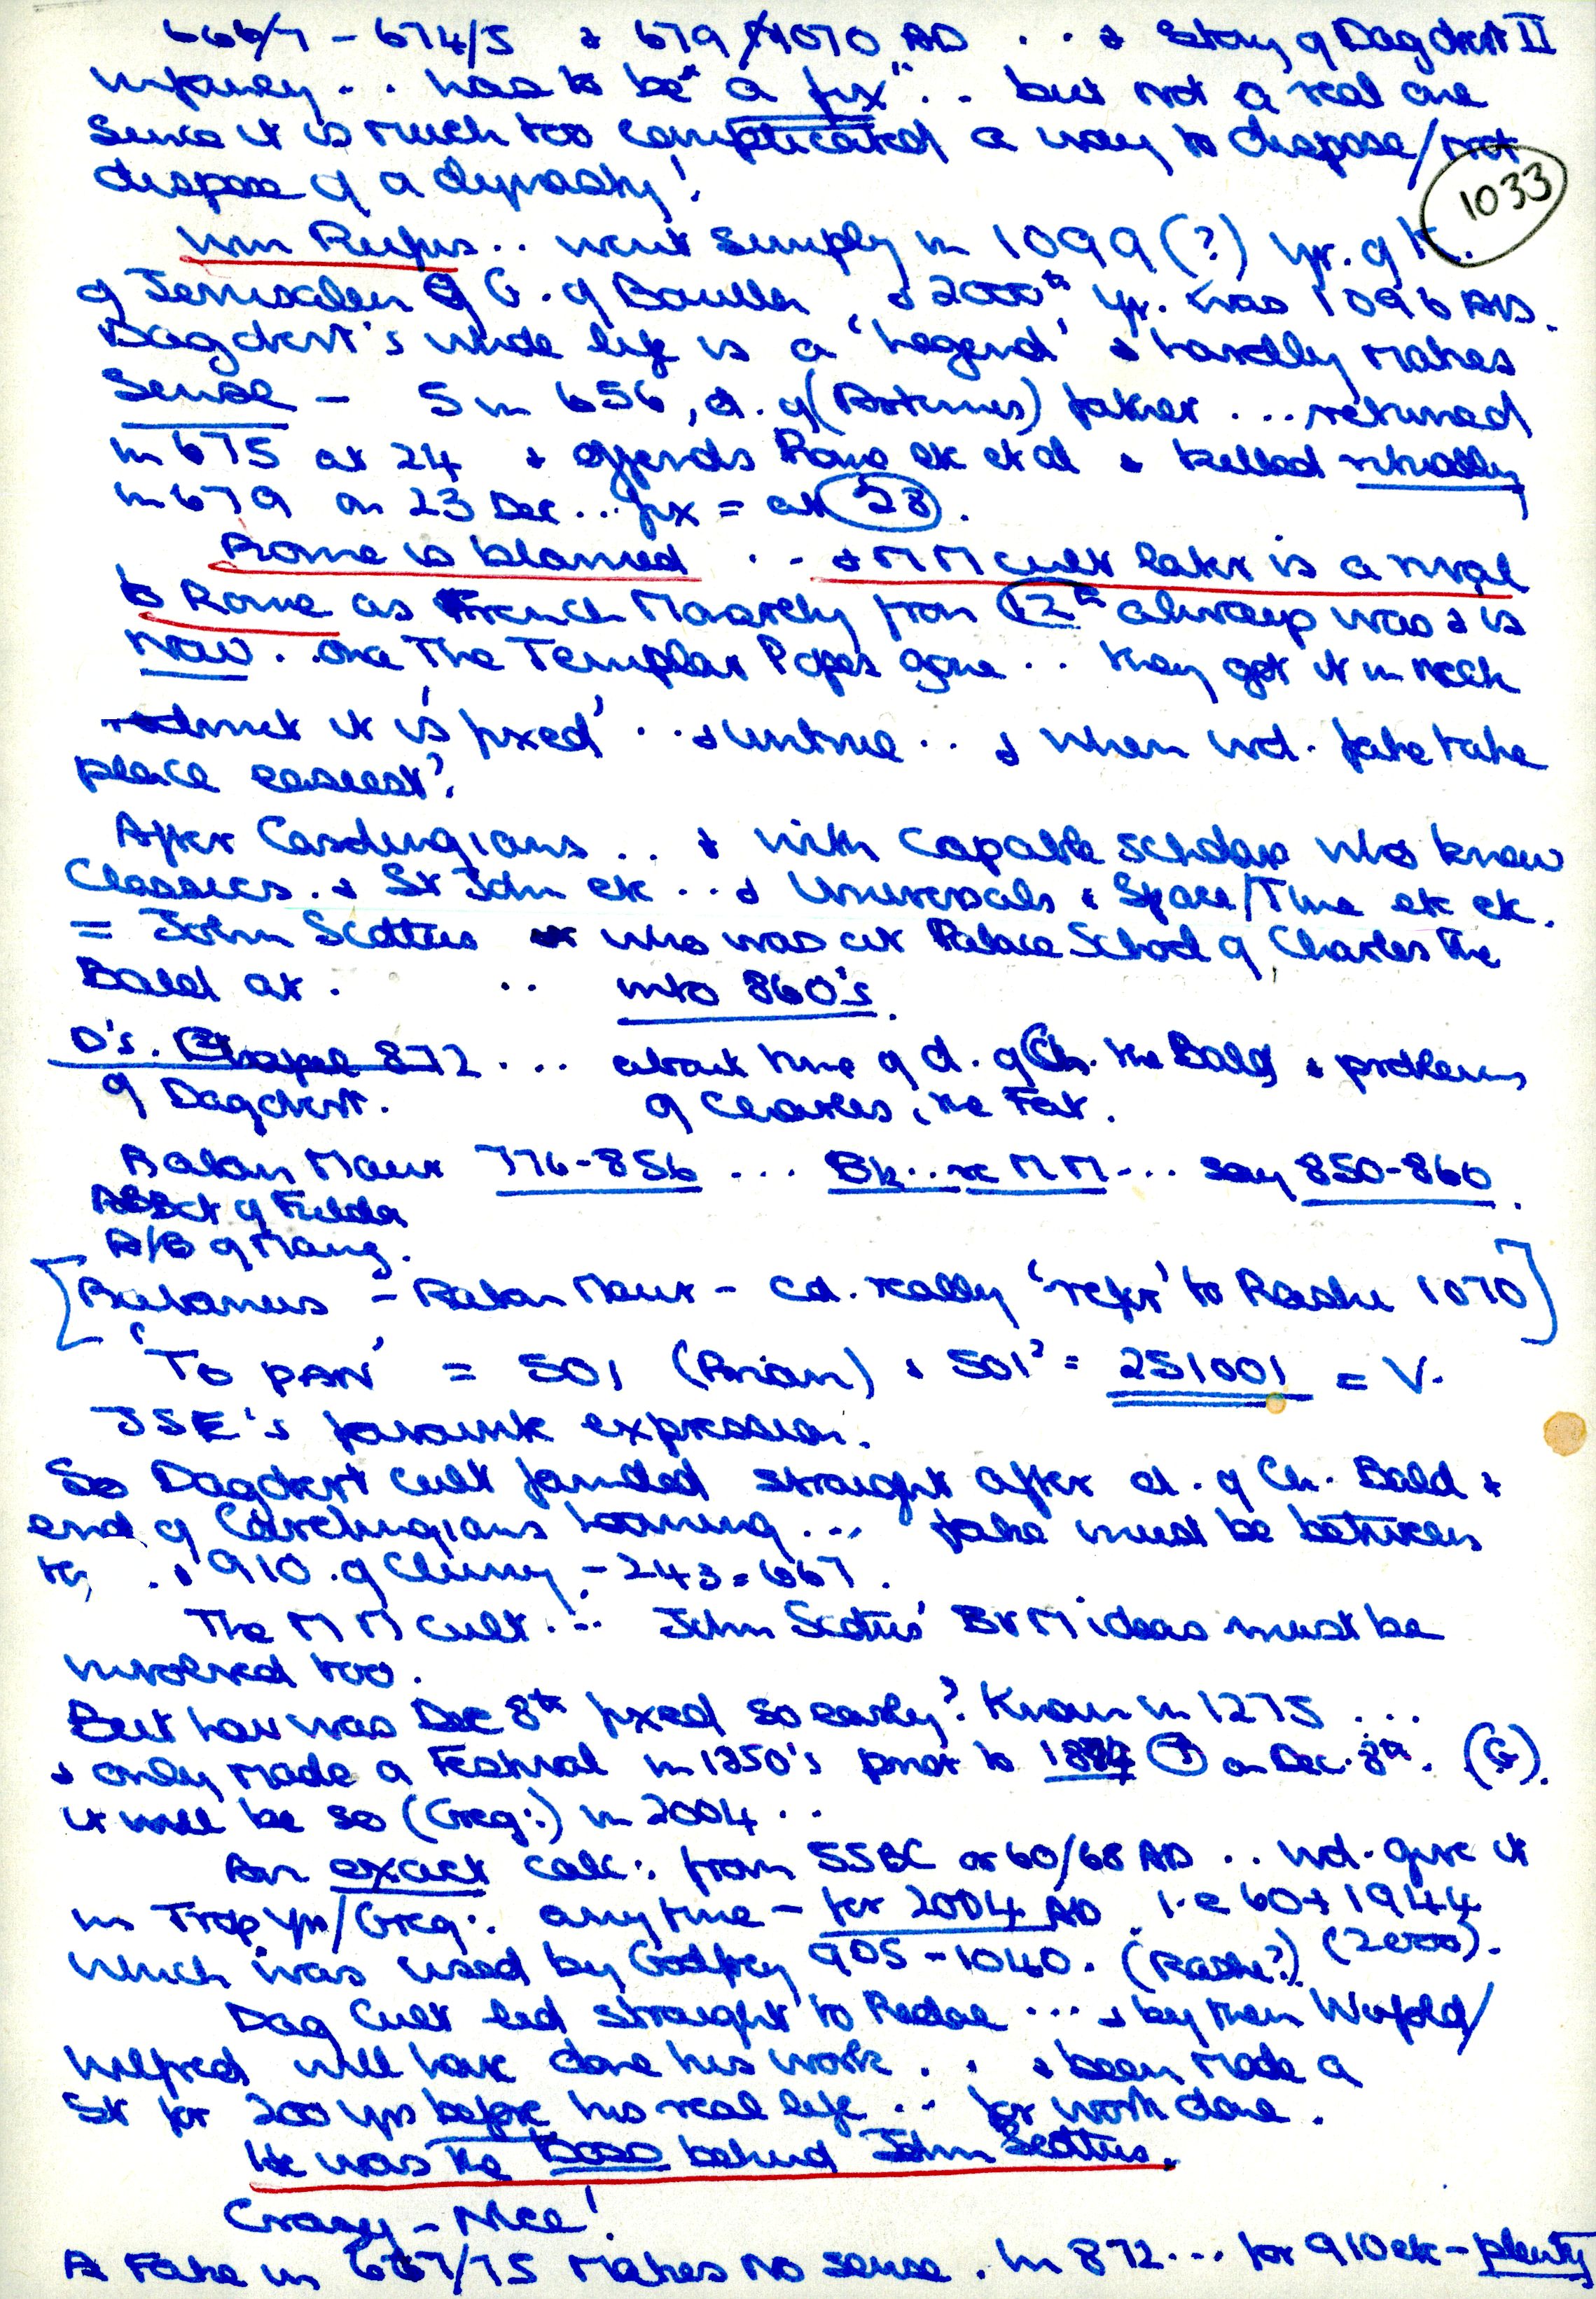 666/7 - 674/5 & 679 / 1070 AD . . & Story of Dagobert II
infancy . . has to be "a fix" . . but not a real one
since it is much too complicated a way to dispose/not
dispose of a dynasty!
1033
Wm Rufus . . went simply in 1099 (?) yr. of K.
of Jerusalem of G. of Bouillon & 2000th yr. was 1096 AD.
Dagobert's whole life is a 'Legend' & hardly makes
Sense - 5 in 656, d. of father . . . returned
in 675 at 24 & offends Rome etc et al & killed ritually
in 679 on 23 Dec . . . fix = at 28.
Rome is blamed . . & MM cult later is a rival
to Rome as French Monarchy from 12th always was & is
now . . once The Templar Popes gone . . they got it in neck
it is 'fixed' . . & untrue . . & when wd. fake take
place easiest?
After Carolingians . . & with capable scholars who knew
Classics . & St John etc . . & Universals & Space/Time etc etc.
= John Scottus who was at Palace School of Charles the
Bald at . . . into 860's.
D's. Chapel 872 . . . about time of d. of Ch. the Bald & problems
of Dagobert. of Charles, the Fat.
Raban Maur 776-856 . . . Bk. . re MM . . . say 850-860.
Abbot of Fulda
A/B of Mainz.
[Rabanus - Raban Maur - cd. really 'refer' to Rashi 1070]
'To PAN' = 501 (Brian) & 501² = 251001 = V.
JSE's favourite expression.
So Dagobert cult founded straight after d. of Ch. Bald &
end of Carolingians looming . . . fake must be between
. & 910 . of Cluny - 243 = 667.
The MM cult . . . John Scottus' BVM ideas must be
involved too.
But how was Dec 8th fixed so early? Known in 1275 . . .
& only made a Festival in 1850's prior to on Dec. 8th. (G).
it will be so (Greg:) in 2004 . .
An exact calc: from 55BC or 60/68 AD . . wd. give it
in Trop yrs/Greg: anytime - for 2004 AD i.e 60 + 1944
which was used by Godfrey 905 - 1040. (Rashi?) (2000).
Dag Cult led straight to Redae . . . & by then Wilfold/
Wilfred will have done his work . . & been made a
St for 200 yrs before his real life . . for work done.
He was the Boss behind John Scottus.
Crazy - Nice!
A Fake in 667/75 makes no sense . In 872 . . . for 910 etc - plenty